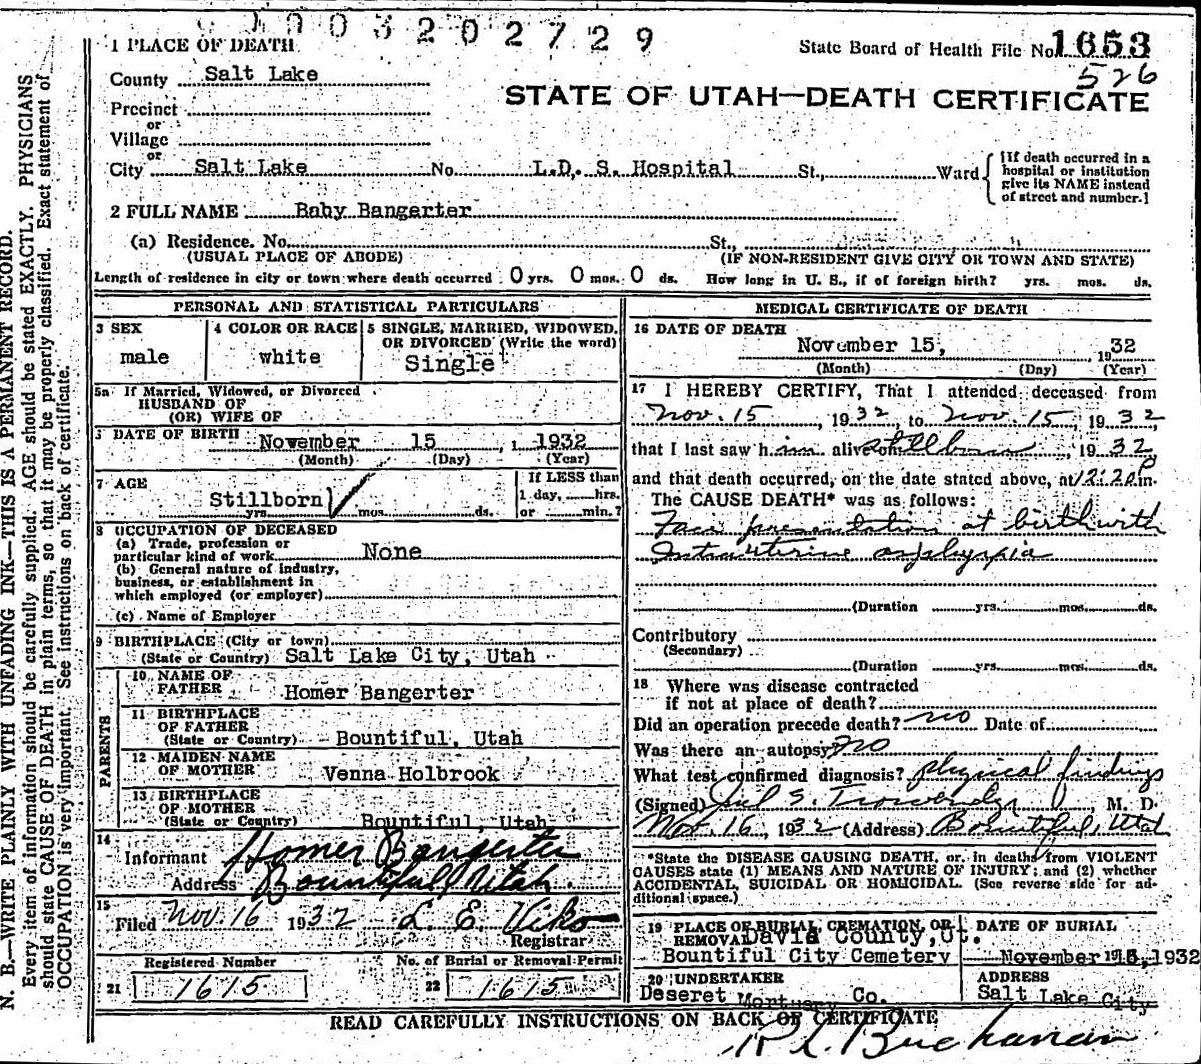 003202729
State Board of Health File No. 1653
526
STATE OF UTAH—DEATH CERTIFICATE
1 PLACE OF DEATH
County Salt Lake
Precinct
or
Village
or
City Salt Lake No. L.D. S. Hospital St., Ward
[If death occurred in a
hospital or institution
give its NAME instead
of street and number.]
2 FULL NAME Baby Bangerter
(a) Residence. No. St.,
(USUAL PLACE OF ABODE) (IF NON-RESIDENT GIVE CITY OR TOWN AND STATE)
Length of residence in city or town where death occurred 0 yrs. 0 mos. 0 ds. How long in U. S., if of foreign birth? yrs. mos. ds.
PERSONAL AND STATISTICAL PARTICULARS
3 SEX
male
4 COLOR OR RACE
white
5 SINGLE, MARRIED, WIDOWED,
OR DIVORCED (Write the word)
Single
5a If Married, Widowed, or Divorced
HUSBAND OF
(OR) WIFE OF
DATE OF BIRTH November 15 , 1932
(Month) (Day) (Year)
7 AGE
Stillborn
yrs. mos. ds.
If LESS than
1 day, hrs.
or min.?
8 OCCUPATION OF DECEASED
(a) Trade, profession or
particular kind of work None
(b) General nature of industry,
business, or establishment in
which employed (or employer)
(c) Name of Employer
9 BIRTHPLACE (City or town)
(State or Country) Salt Lake City, Utah
PARENTS
10 NAME OF
FATHER Homer Bangerter
11 BIRTHPLACE
OF FATHER
(State or Country) Bountiful, Utah
12 MAIDEN NAME
OF MOTHER Venna Holbrook
13 BIRTHPLACE
OF MOTHER
(State or Country) Bountiful, Utah
14
Informant Homer Bangerter
Address Bountiful Utah
15
Filed Nov. 16 1932 L. E. Viko
Registrar
Registered Number No. of Burial or Removal Permit
21 1615 22 1615
MEDICAL CERTIFICATE OF DEATH
16 DATE OF DEATH
November 15, , 1932
(Month) (Day) (Year)
17 I HEREBY CERTIFY, That I attended deceased from
Nov. 15 , 1932, to Nov. 15, 1932
that I last saw him alive on stillborn , 1932,
and that death occurred, on the date stated above, at 12:20 Pm.
The CAUSE DEATH* was as follows:
Face presentation at birth with
Intrauterine asphyxia
(Duration yrs. mos. ds.
Contributory
(Secondary)
(Duration yrs. mos. ds.
18 Where was disease contracted
if not at place of death?
Did an operation precede death? no Date of
Was there an autopsy no
What test confirmed diagnosis? physical findings
(Signed) S. , M. D.
Nov. 16, 1932 (Address) Bountiful, Utah
*State the DISEASE CAUSING DEATH, or, in deaths from VIOLENT
CAUSES state (1) MEANS AND NATURE OF INJURY; and (2) whether
ACCIDENTAL, SUICIDAL OR HOMICIDAL. (See reverse side for ad-
ditional space.)
19 PLACE OF BURIAL, CREMATION, OR
REMOVAL Davis County, Ut.
Bountiful City Cemetery
DATE OF BURIAL
November 1932
20 UNDERTAKER
Deseret Mortuary Co.
ADDRESS
Salt Lake City
READ CAREFULLY INSTRUCTIONS ON BACK OF CERTIFICATE
Buchanan
N. B.—WRITE PLAINLY WITH UNFADING INK—THIS IS A PERMANENT RECORD.
Every item of information should be carefully supplied. AGE should be stated EXACTLY. PHYSICIANS
should state CAUSE OF DEATH in plain terms, so that it may be properly classified. Exact statement of
OCCUPATION is very important. See instructions on back of certificate.